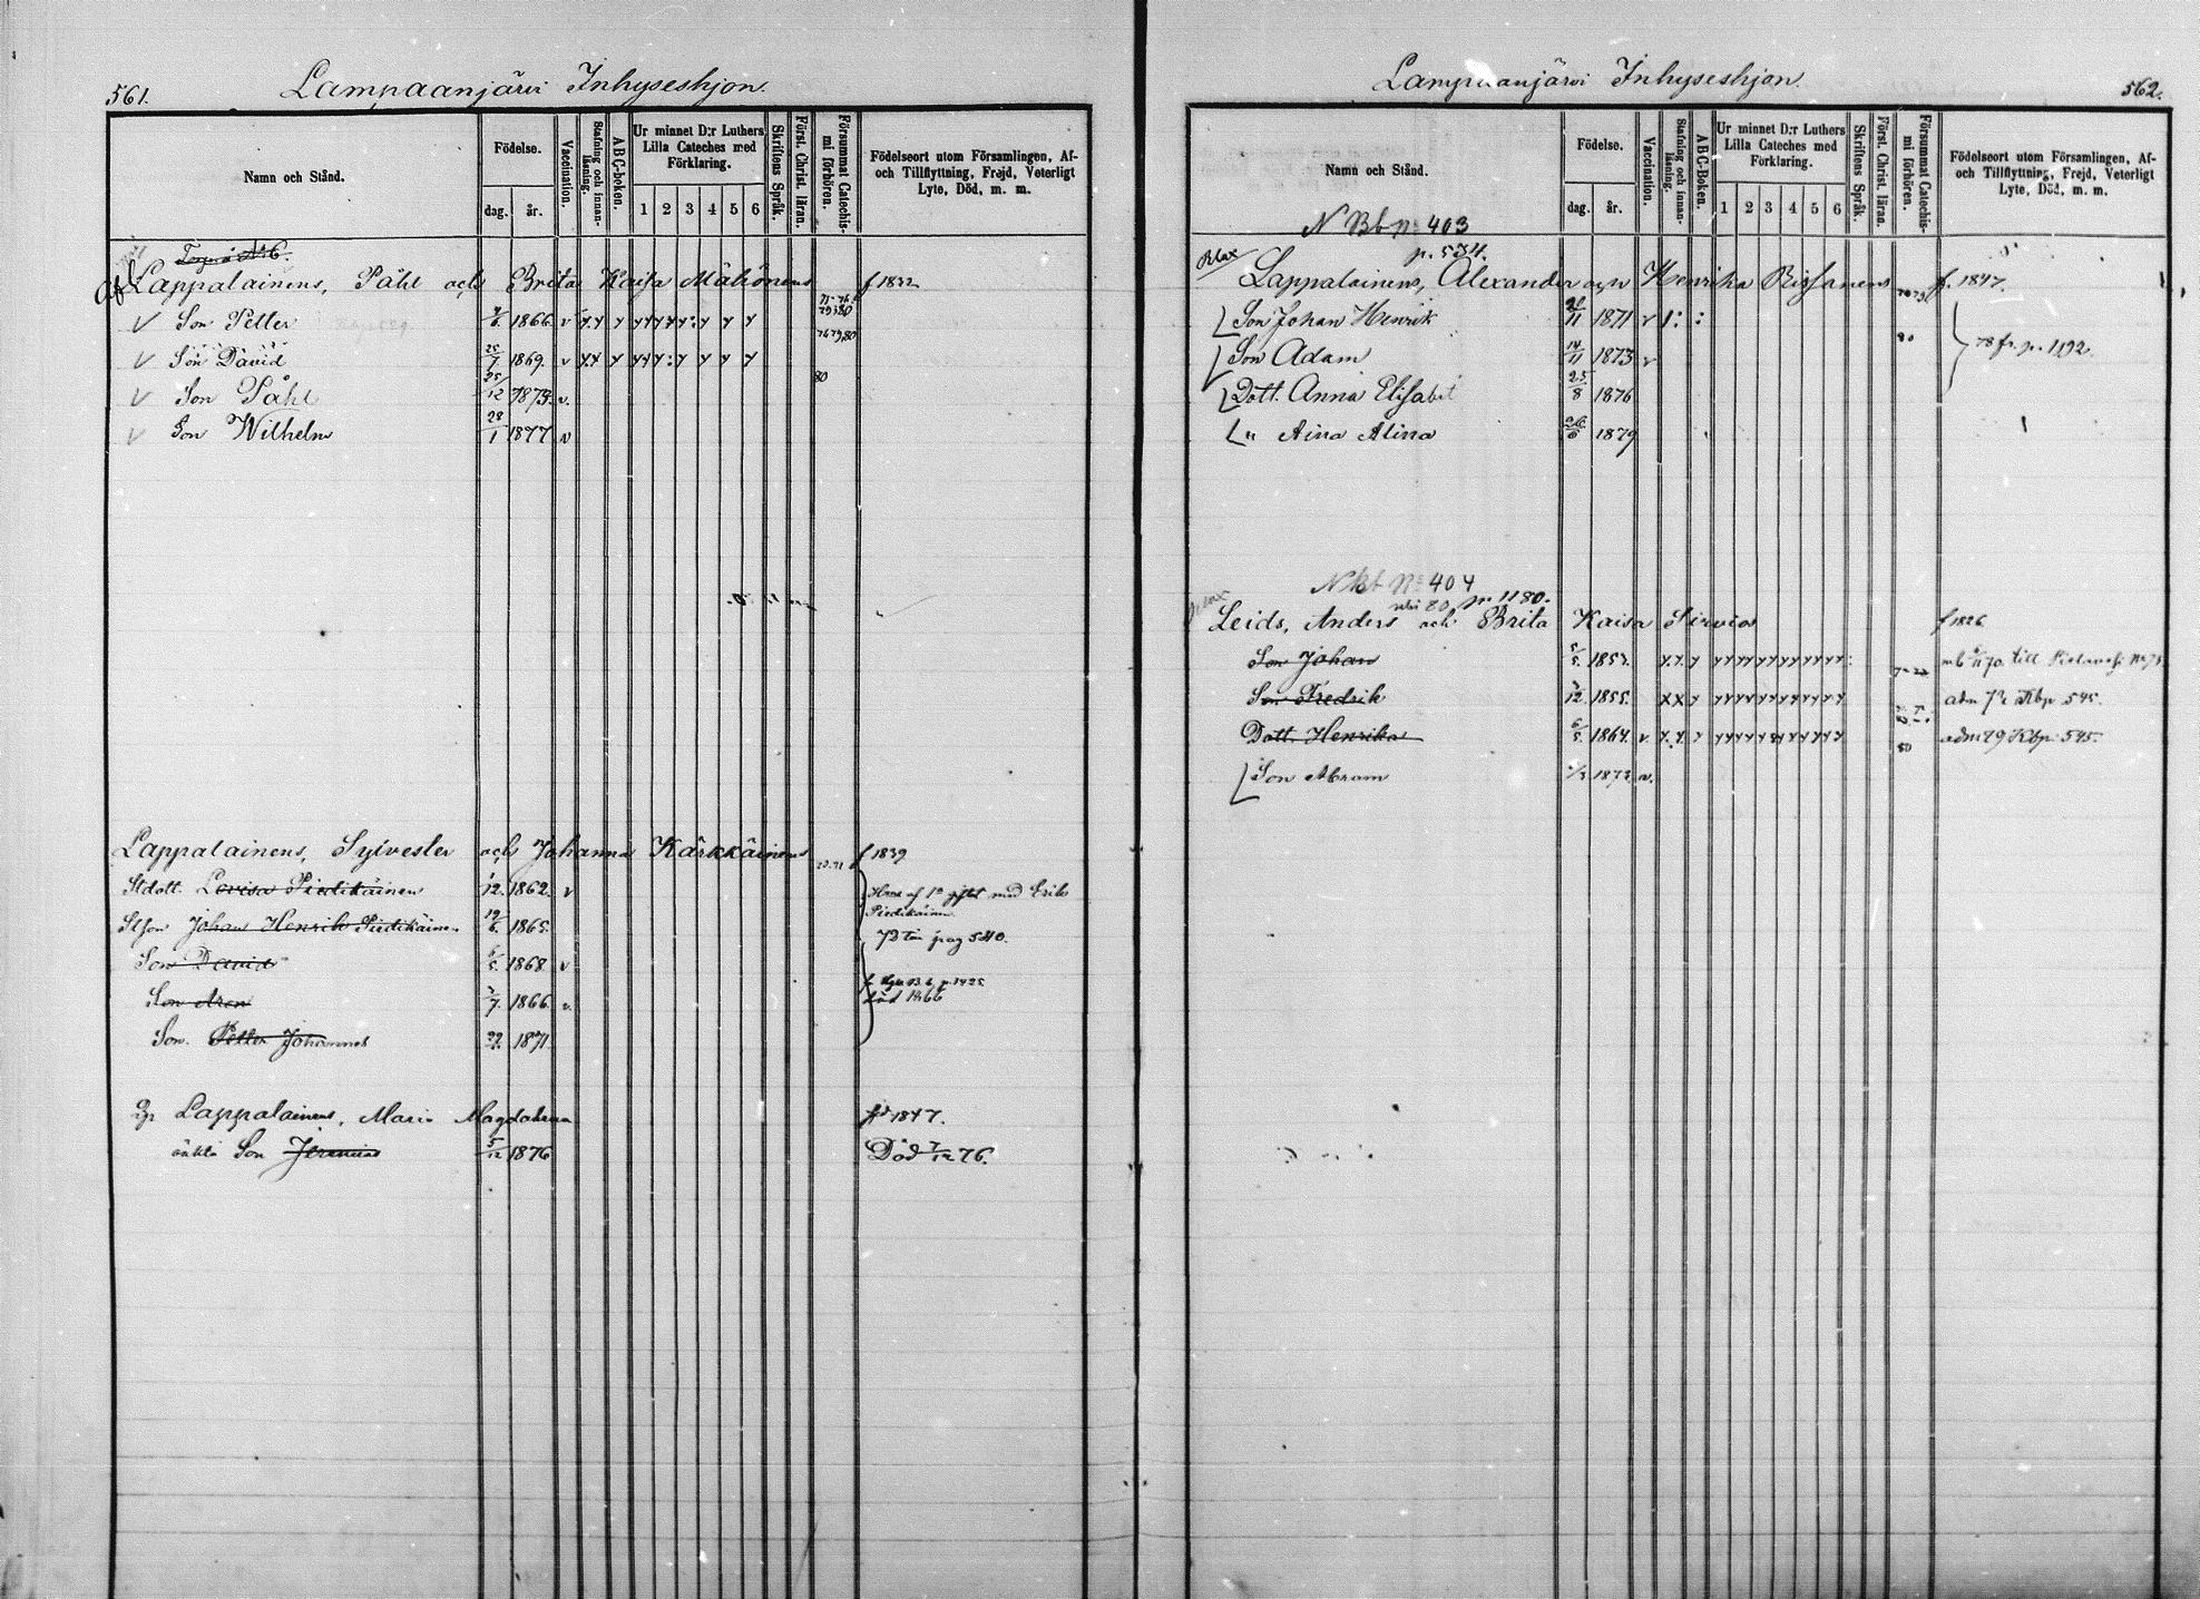 561.
Lampaanjärvi Inhyseshjon.
Namn och Stånd.
Födelse.
dag.
år.
Vaccination.
Stafning och innan-läsning.
A B C-boken.
Ur minnet D:r Luthers Lilla Cateches med Förklaring.
1 2 3 4 5 6
Skriftens Språk.
Först. Christ. läran.
Försummat Catechis-mi förhören.
Födelseort utom Församlingen, Af- och Tillflyttning, Frejd, Veterligt Lyte, Död, m. m.
Torpa No 6.
Lappalainens, Påhl och Brita Kaisa Mähönens f 1832
Son Petter 1866 v
Son David 25/7 1869. v
Son Påhl 25/12 1873. v. 80
Son Wilhelm 28/1 1877 v
Lappalainens, Sylvester och Johanna Kärkkäinens f 1839
Stdott. Lovisa Piedikäinen 1862. v Hon af 1a giftet med Erik Piedikäinen
Stson Johan Henrik Piedikäinen 19/6. 1865. 72 till pag 540.
Son David 1868 v
Son Aron 1866. v. född 1866
Son Petter Johannes 1871
Lappalainens, Maria Magdalena f. 1847.
oäkta Son Jeremias 5/12 1876 Död 7/12 76.
Lampaanjärvi Inhyseshjon.
562.
Namn och Stånd.
Födelse.
dag.
år.
Vaccination.
Stafning och innan-läsning.
A B C-Boken.
Ur minnet D:r Luthers Lilla Cateches med Förklaring.
1 2 3 4 5 6
Skriftens Språk.
Först. Christ. läran.
Försummat Catechis-mi förhören.
Födelseort utom Församlingen, Af- och Tillflyttning, Frejd, Veterligt Lyte, Död, m. m.
N Bb No 403
p. 534.
Lappalainens, Alexander och Henrika Rissanens f. 1847.
Son Johan Henrik 1871 v
Son Adam 14/11 1873 v 80 78 fr. p. 1192.
Dott. Anna Elisabet 25/8 1876
" Aina Alina 1879
N Bb No 404
p. 1180.
Leids, Anders och Brita Kaisa Sirviös f 1826
Son Johan 5/5. 1853.
Son Fredrik 12. 1855. Kbp 545.
Dott. Henrika 6/5. 1864. v. 80 adm 79 Kbp 545.
Son Abram 1873. v.